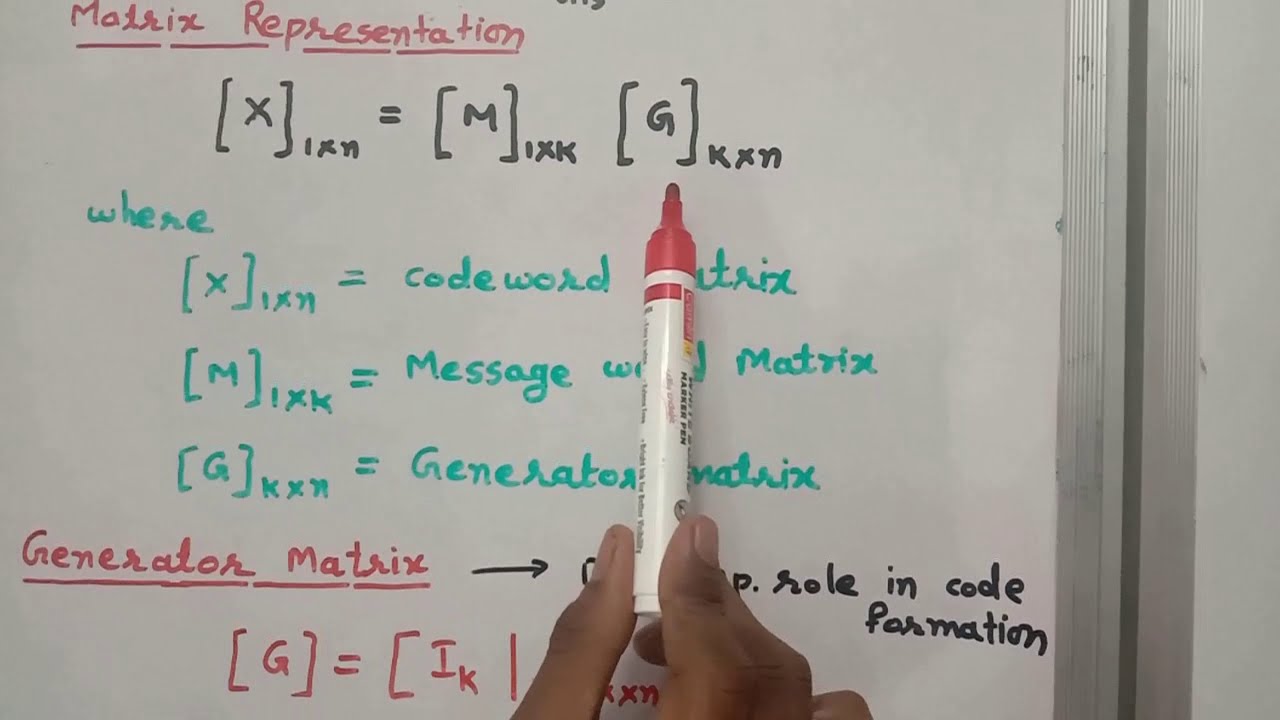 Matrix Representation
[X]1×n = [M]1×k [G]k×n
where
[X]1×n = codeword matrix
[M]1×k = Message word Matrix
[G]k×n = Generator matrix
Generator Matrix → role in code
formation
[G] = [Ik |
MARKER PEN